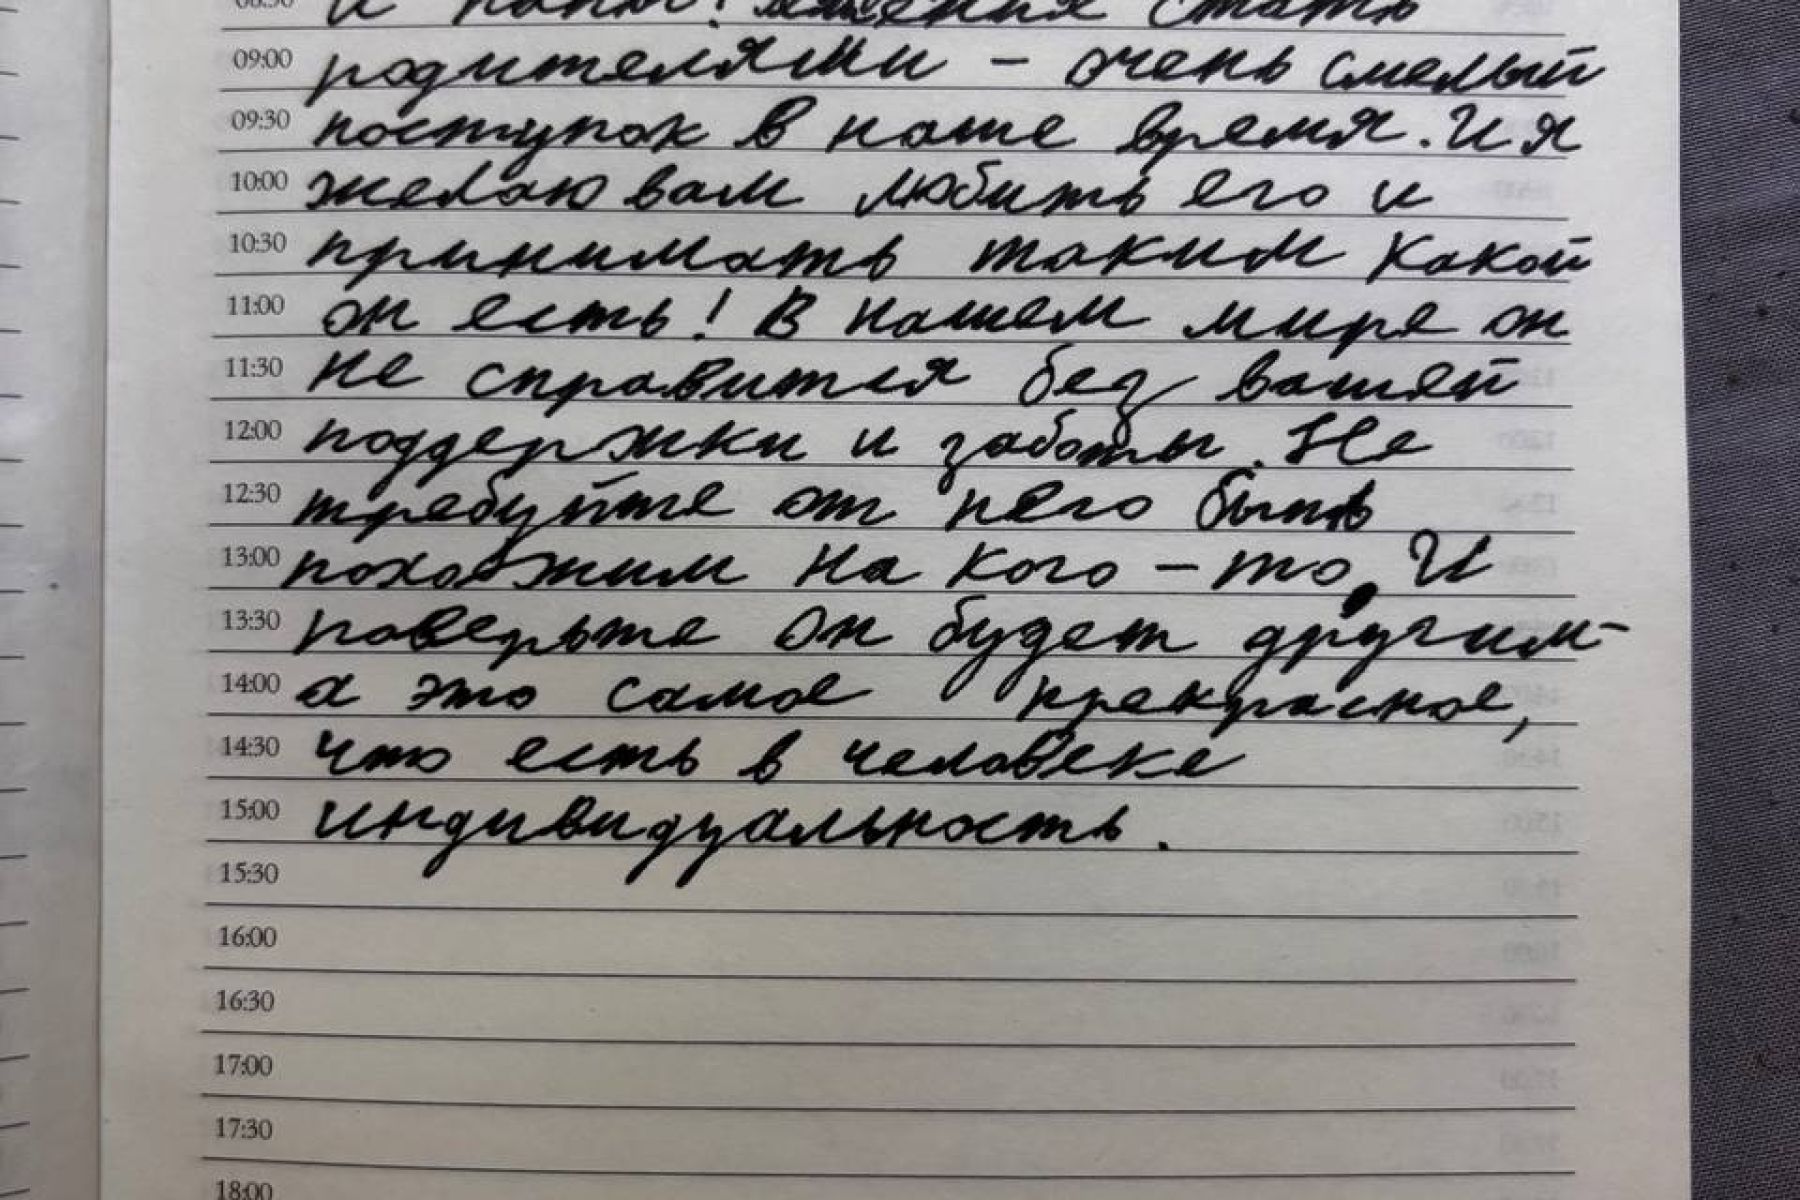 08:30 и папы! решения стать
09:00 родителями - очень смелый
09:30 поступок в наше время. И я
10:00 желаю вам любить его и
10:30 принимать таким какой
11:00 он есть! В нашем мире он
11:30 не справится без вашей
12:00 поддержки и заботы. Не
12:30 требуйте от него быть
13:00 похожим на кого-то. И
13:30 поверьте он будет другим-
14:00 а это самое прекрасное,
14:30 что есть в человеке
15:00 индивидуальность.
15:30
16:00
16:30
17:00
17:30
18:00